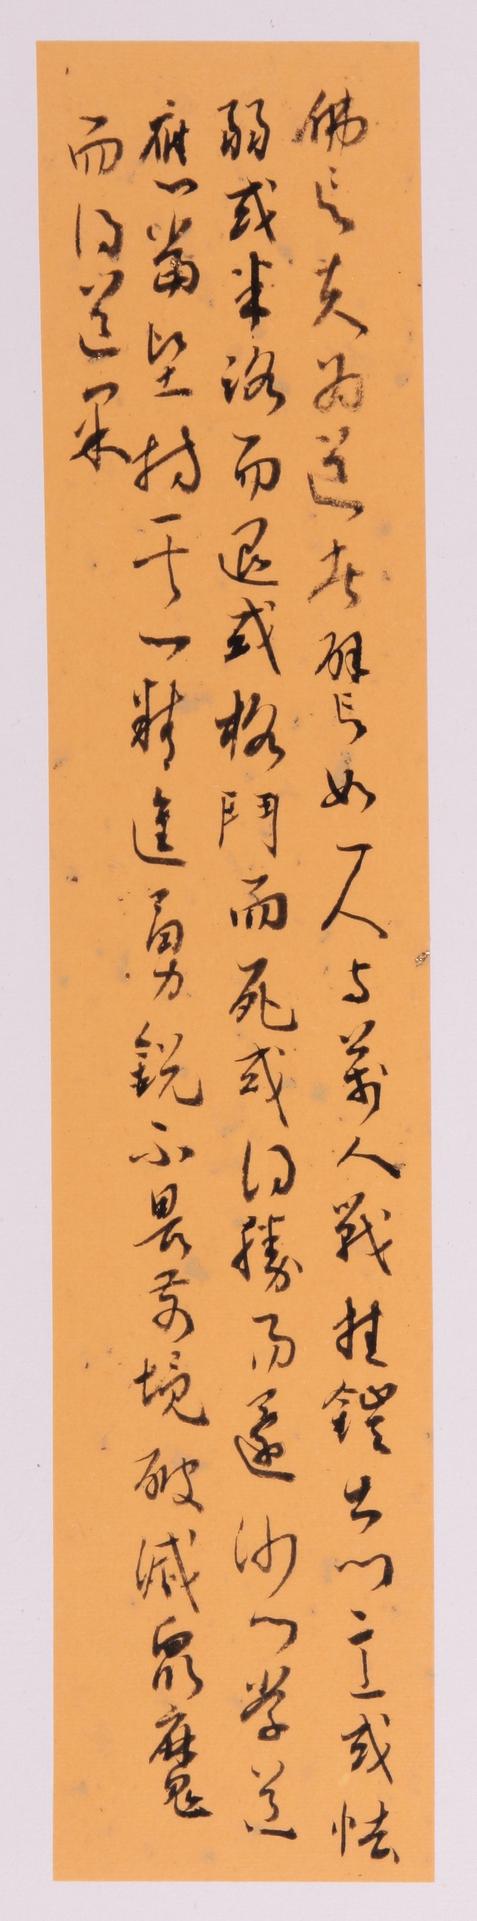 佛言夫為道者譬如一人與萬人戰挂鎧出門意或怯
弱或半路而退或格鬥而死或得勝而還沙門學道
應當堅持其心精進勇銳不畏前境破滅眾魔
而得道果